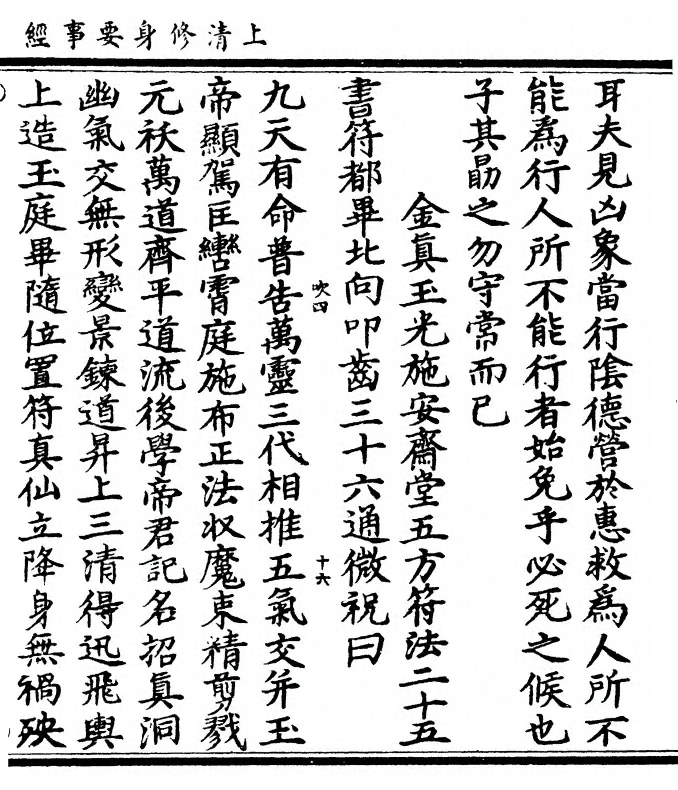 上清修身要事經
耳夫見凶象當行陰德營於惠救爲人所不
能爲行人所不能行者始免乎必死之候也
子其勗之勿守常而已
金真玉光施安齋堂五方符法二十五
書符都畢北向叩齒三十六通微祝曰
九天有命普告萬靈三代相推五氣交并玉
吹四
十六
帝顯駕匡轡霄庭施布正法收魔束精剪戮
元祅萬道齊平道流後學帝君記名招真洞
幽氣交無形變景鍊道昇上三清得迅飛輿
上造玉庭畢隨位置符真仙立降身無禍殃